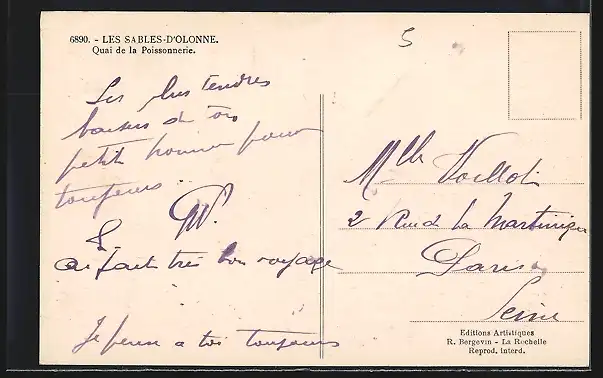 6890. - LES SABLES-D'OLONNE.
Quai de la Poissonnerie.
5
Les plus tendres
baisers de ton
petit homme pour
toujours
ai fait très bon voyage
Je pense a toi toujours
Mlle Voillot
2 Rue de la Martinique
Paris
Seine
Editions Artistiques
R. Bergevin - La Rochelle
Reprod. interd.